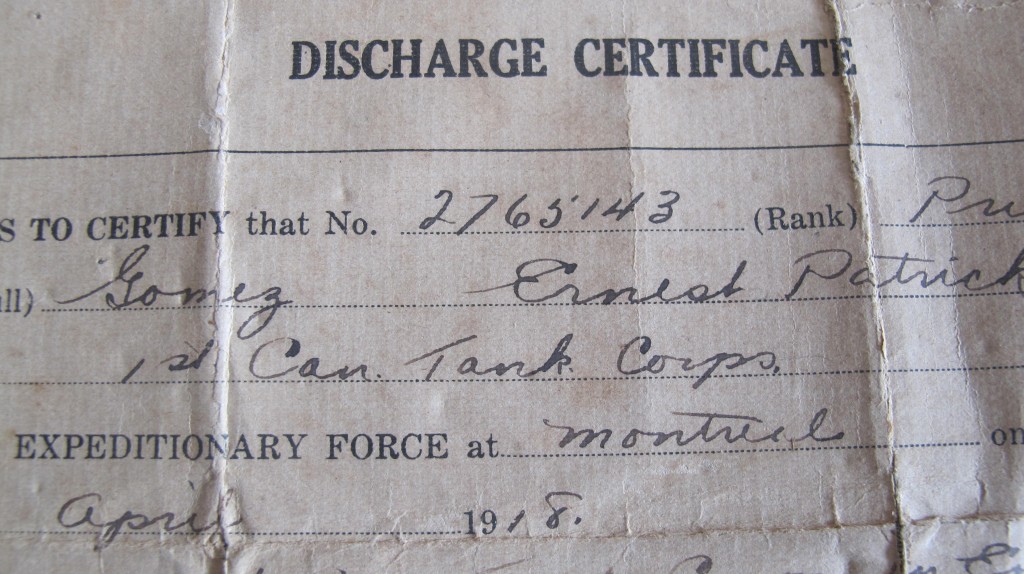 DISCHARGE CERTIFICATE
S TO CERTIFY that No. 2765143 (Rank) Pri
ll) Gomez Ernest Patrick
1st Can. Tank Corps.
EXPEDITIONARY FORCE at Montreal on
April 1918.